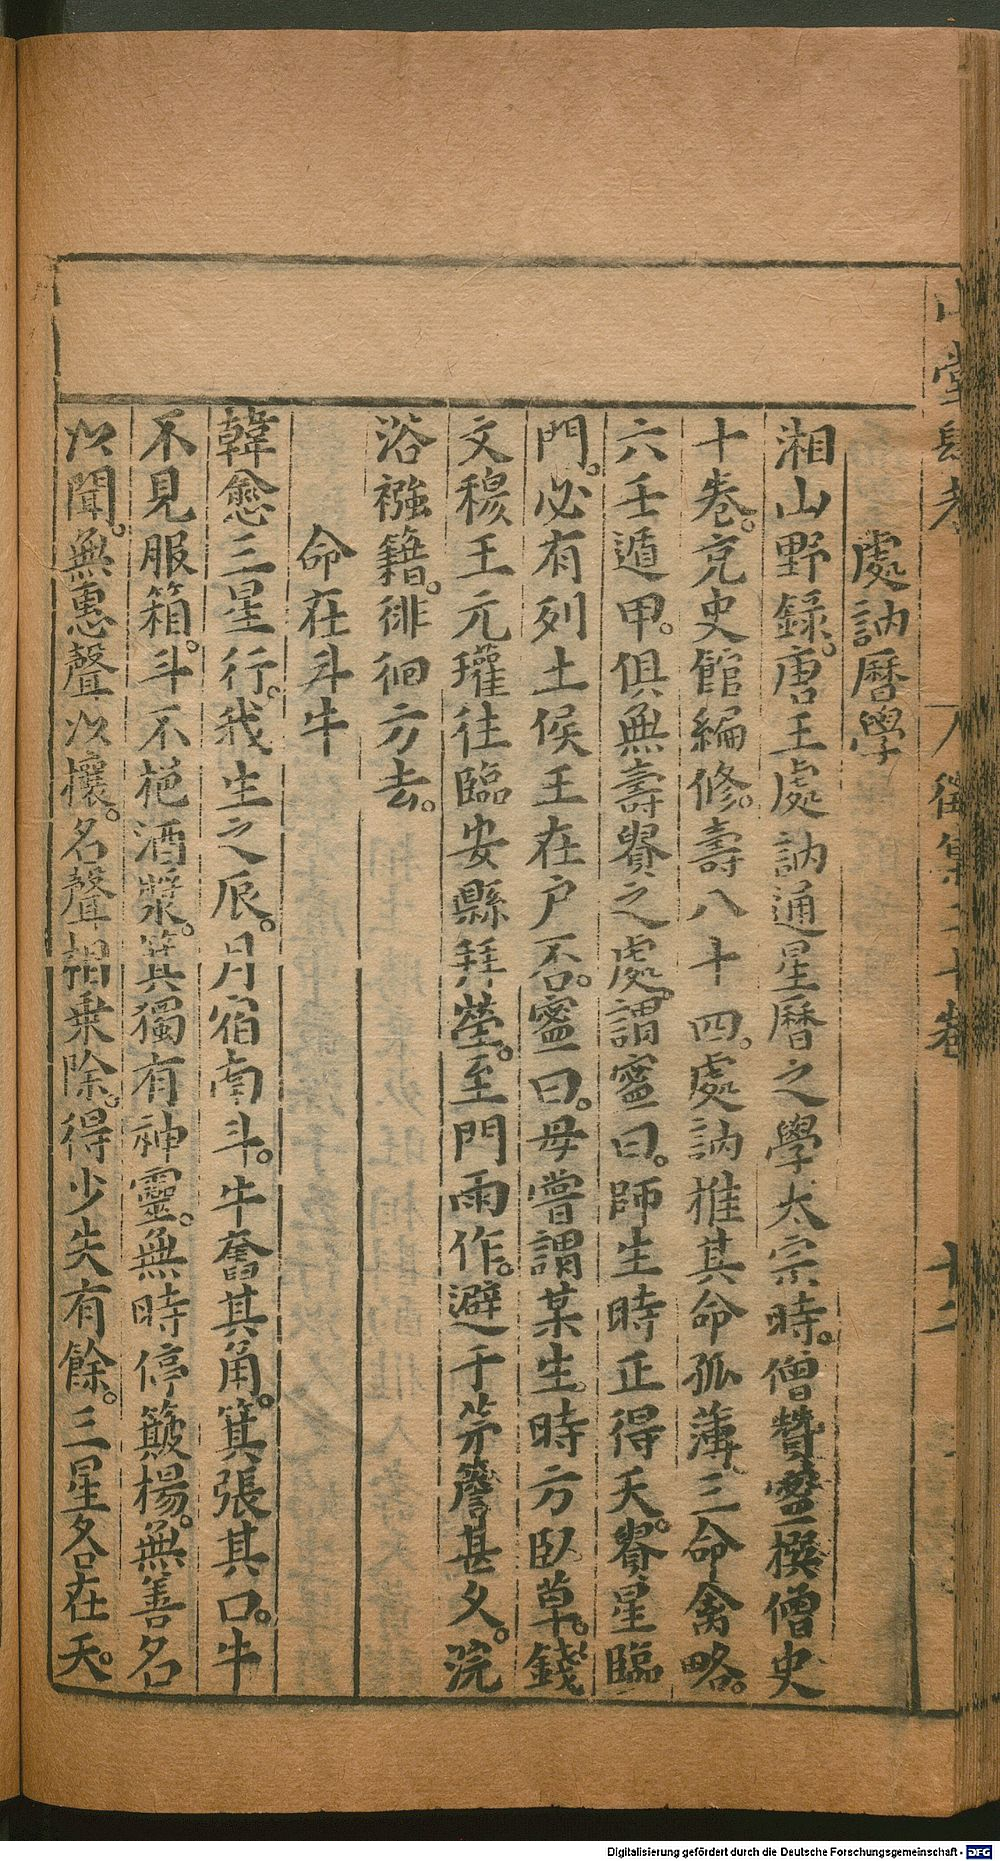 山堂肆考 徵集二十卷 十二
處訥曆學
湘山野録。唐王處訥通星曆之學太宗時。僧贊寧撰僧史
十卷。充史館編修。壽八十四。處訥推其命孤薄。三命禽略。
六壬遁甲。俱無壽貴之處。謂寧曰。師生時正得天貴星臨
門。必有列土侯王在户否。寧曰。母嘗謂某生時方臥草。錢
文穆王元瓘往臨安縣拜塋。至門雨作。避于茅簷甚久。浣
浴襁籍。徘徊方去。
命在斗牛
韓愈三星行。我生之辰。月宿南斗。牛奮其角。箕張其口。牛
不見服箱。斗不挹酒漿。箕獨有神靈。無時停簸楊。無善名
以聞。無惡聲以攘。名聲相乘除。得少失有餘。三星各在天。
Digitalisierung gefördert durch die Deutsche Forschungsgemeinschaft - DFG